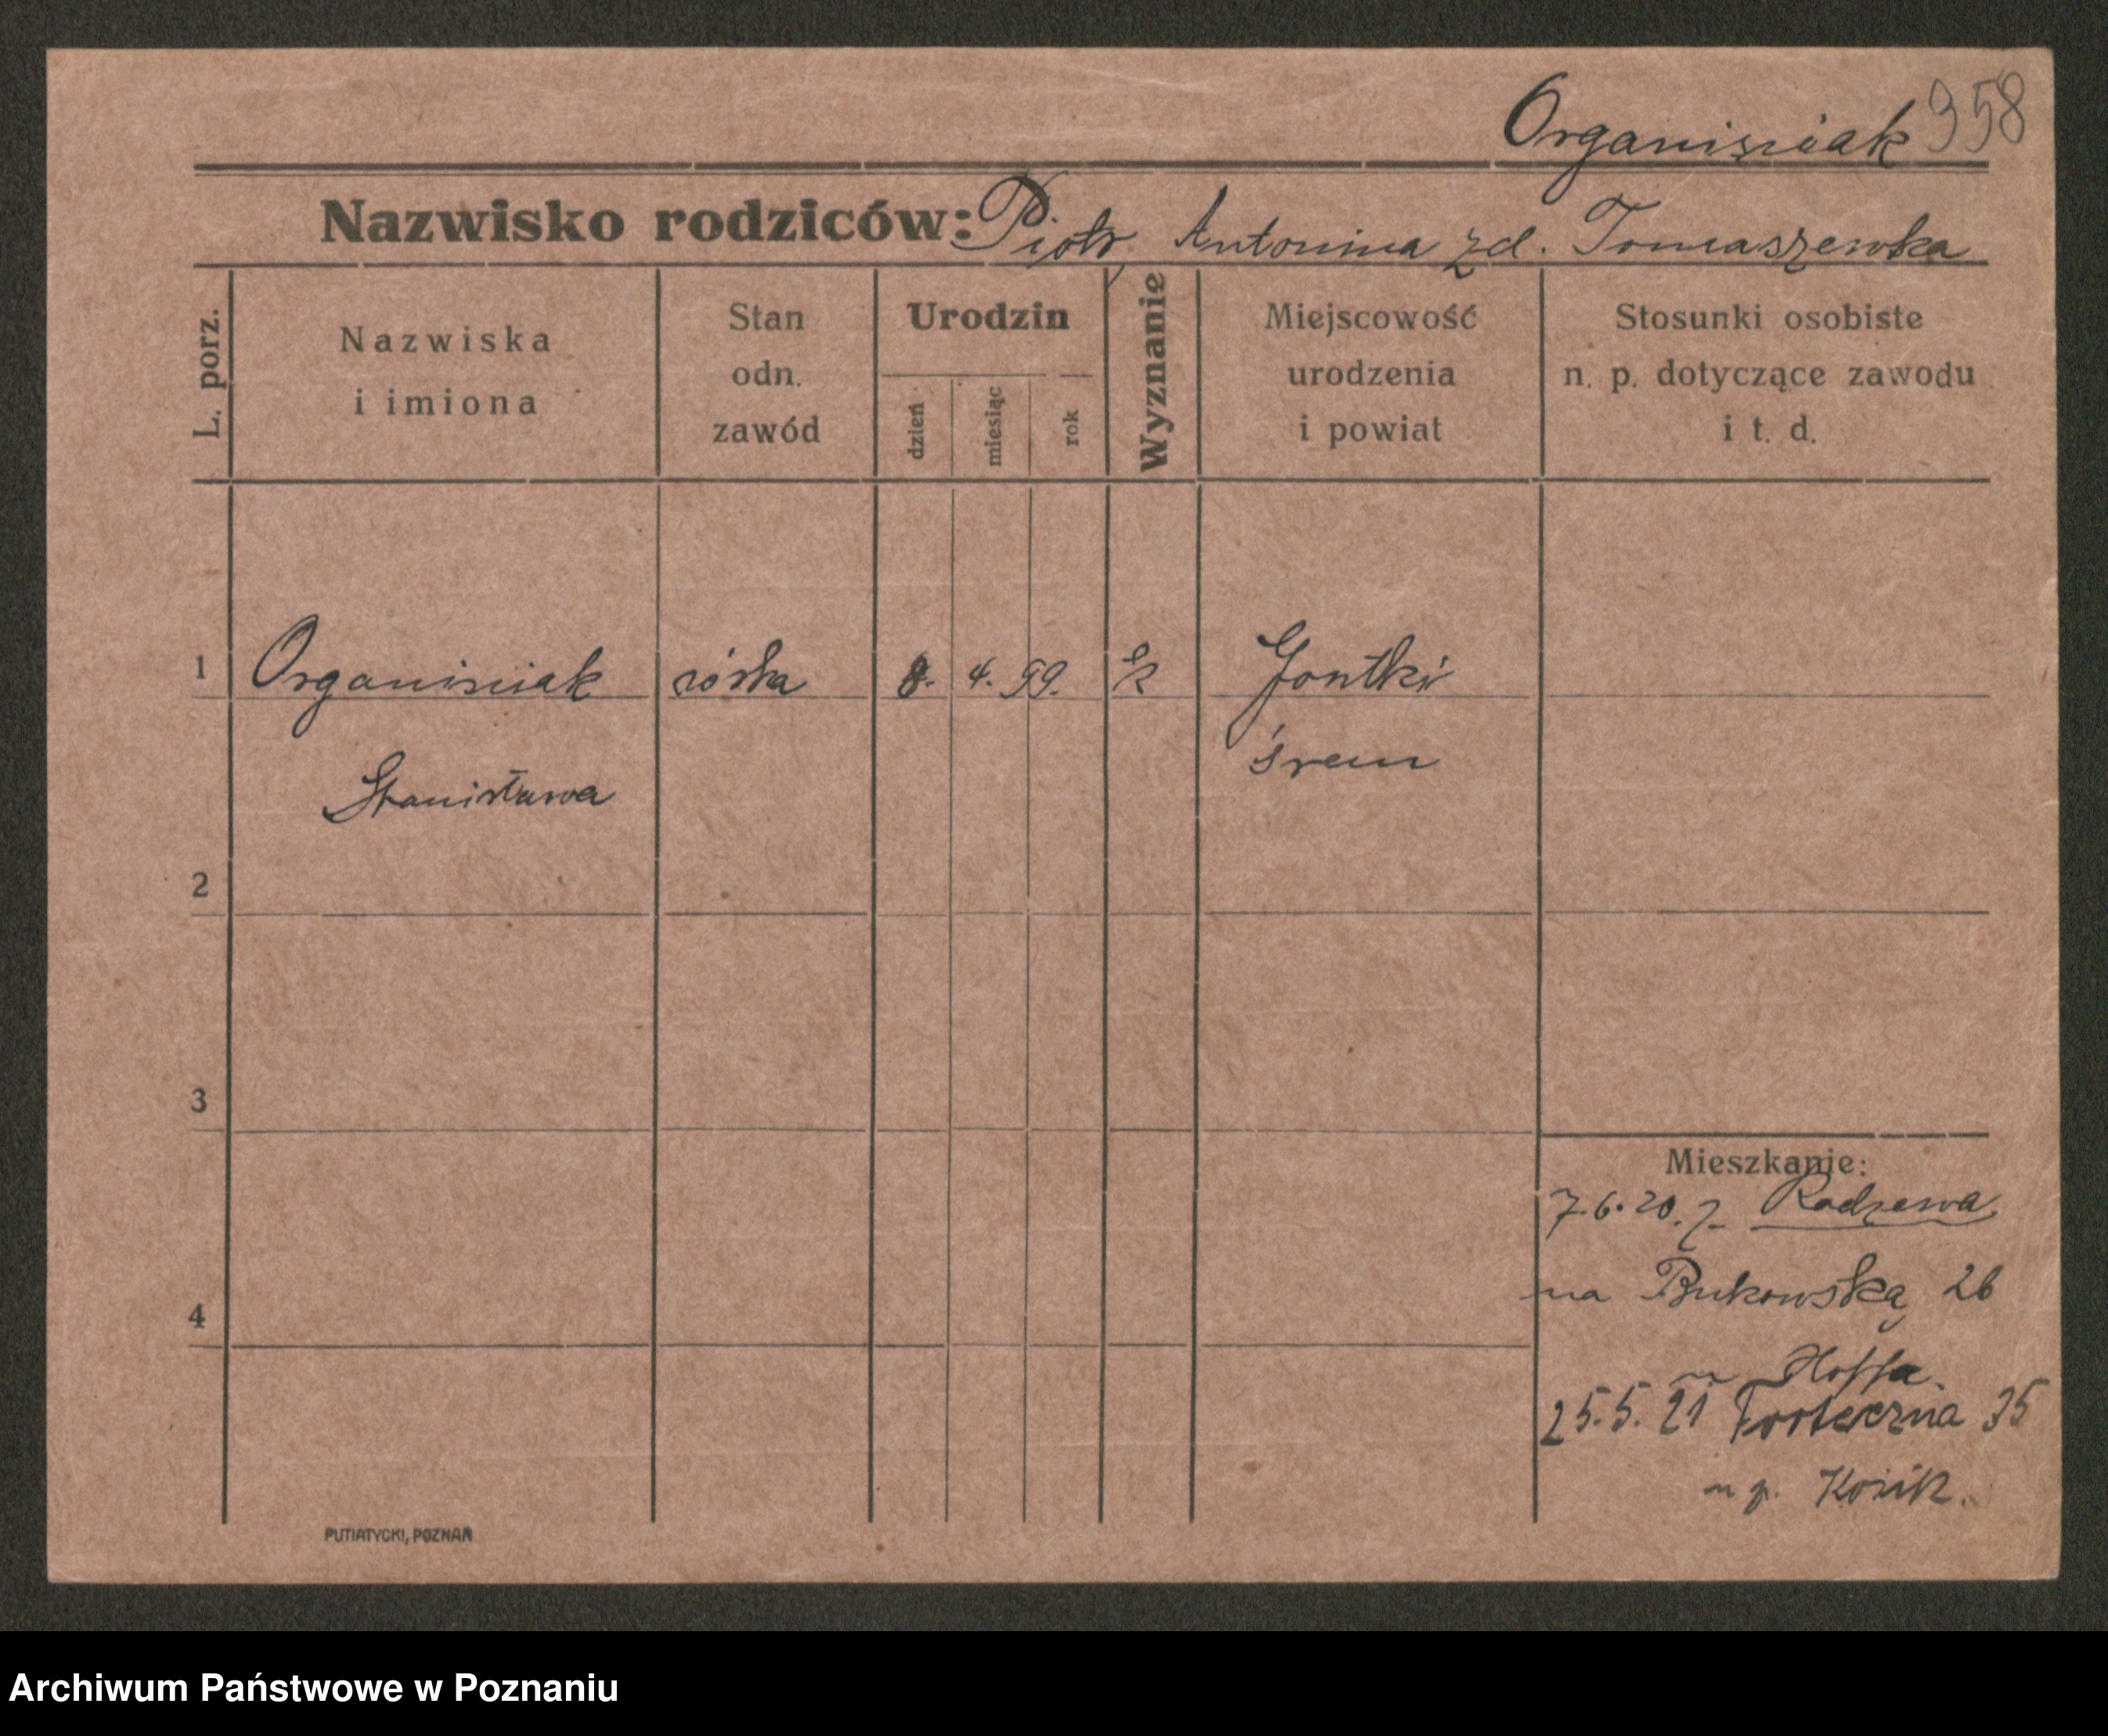 Organisciak 358
Nazwisko rodziców: Piotr, Antonina zd. Tomaszewska
L. porz.
Nazwiska
i imiona
Stan
odn.
zawód
Urodzin
dzień
miesiąc
rok
Wyznanie
Miejscowość
urodzenia
i powiat
Stosunki osobiste
n. p. dotyczące zawodu
i t. d.
1 Organisciak córka 8. 4. 99. k Jontki
śrem
Stanisława
2
3
Mieszkanie:
7.6.20. z Radzewa
na Bukowską 26
Hoffa.
4
25.5.21 Forteczna 35
Kozik.
PUTIATYCKI, POZNAŃ
Archiwum Państwowe w Poznaniu